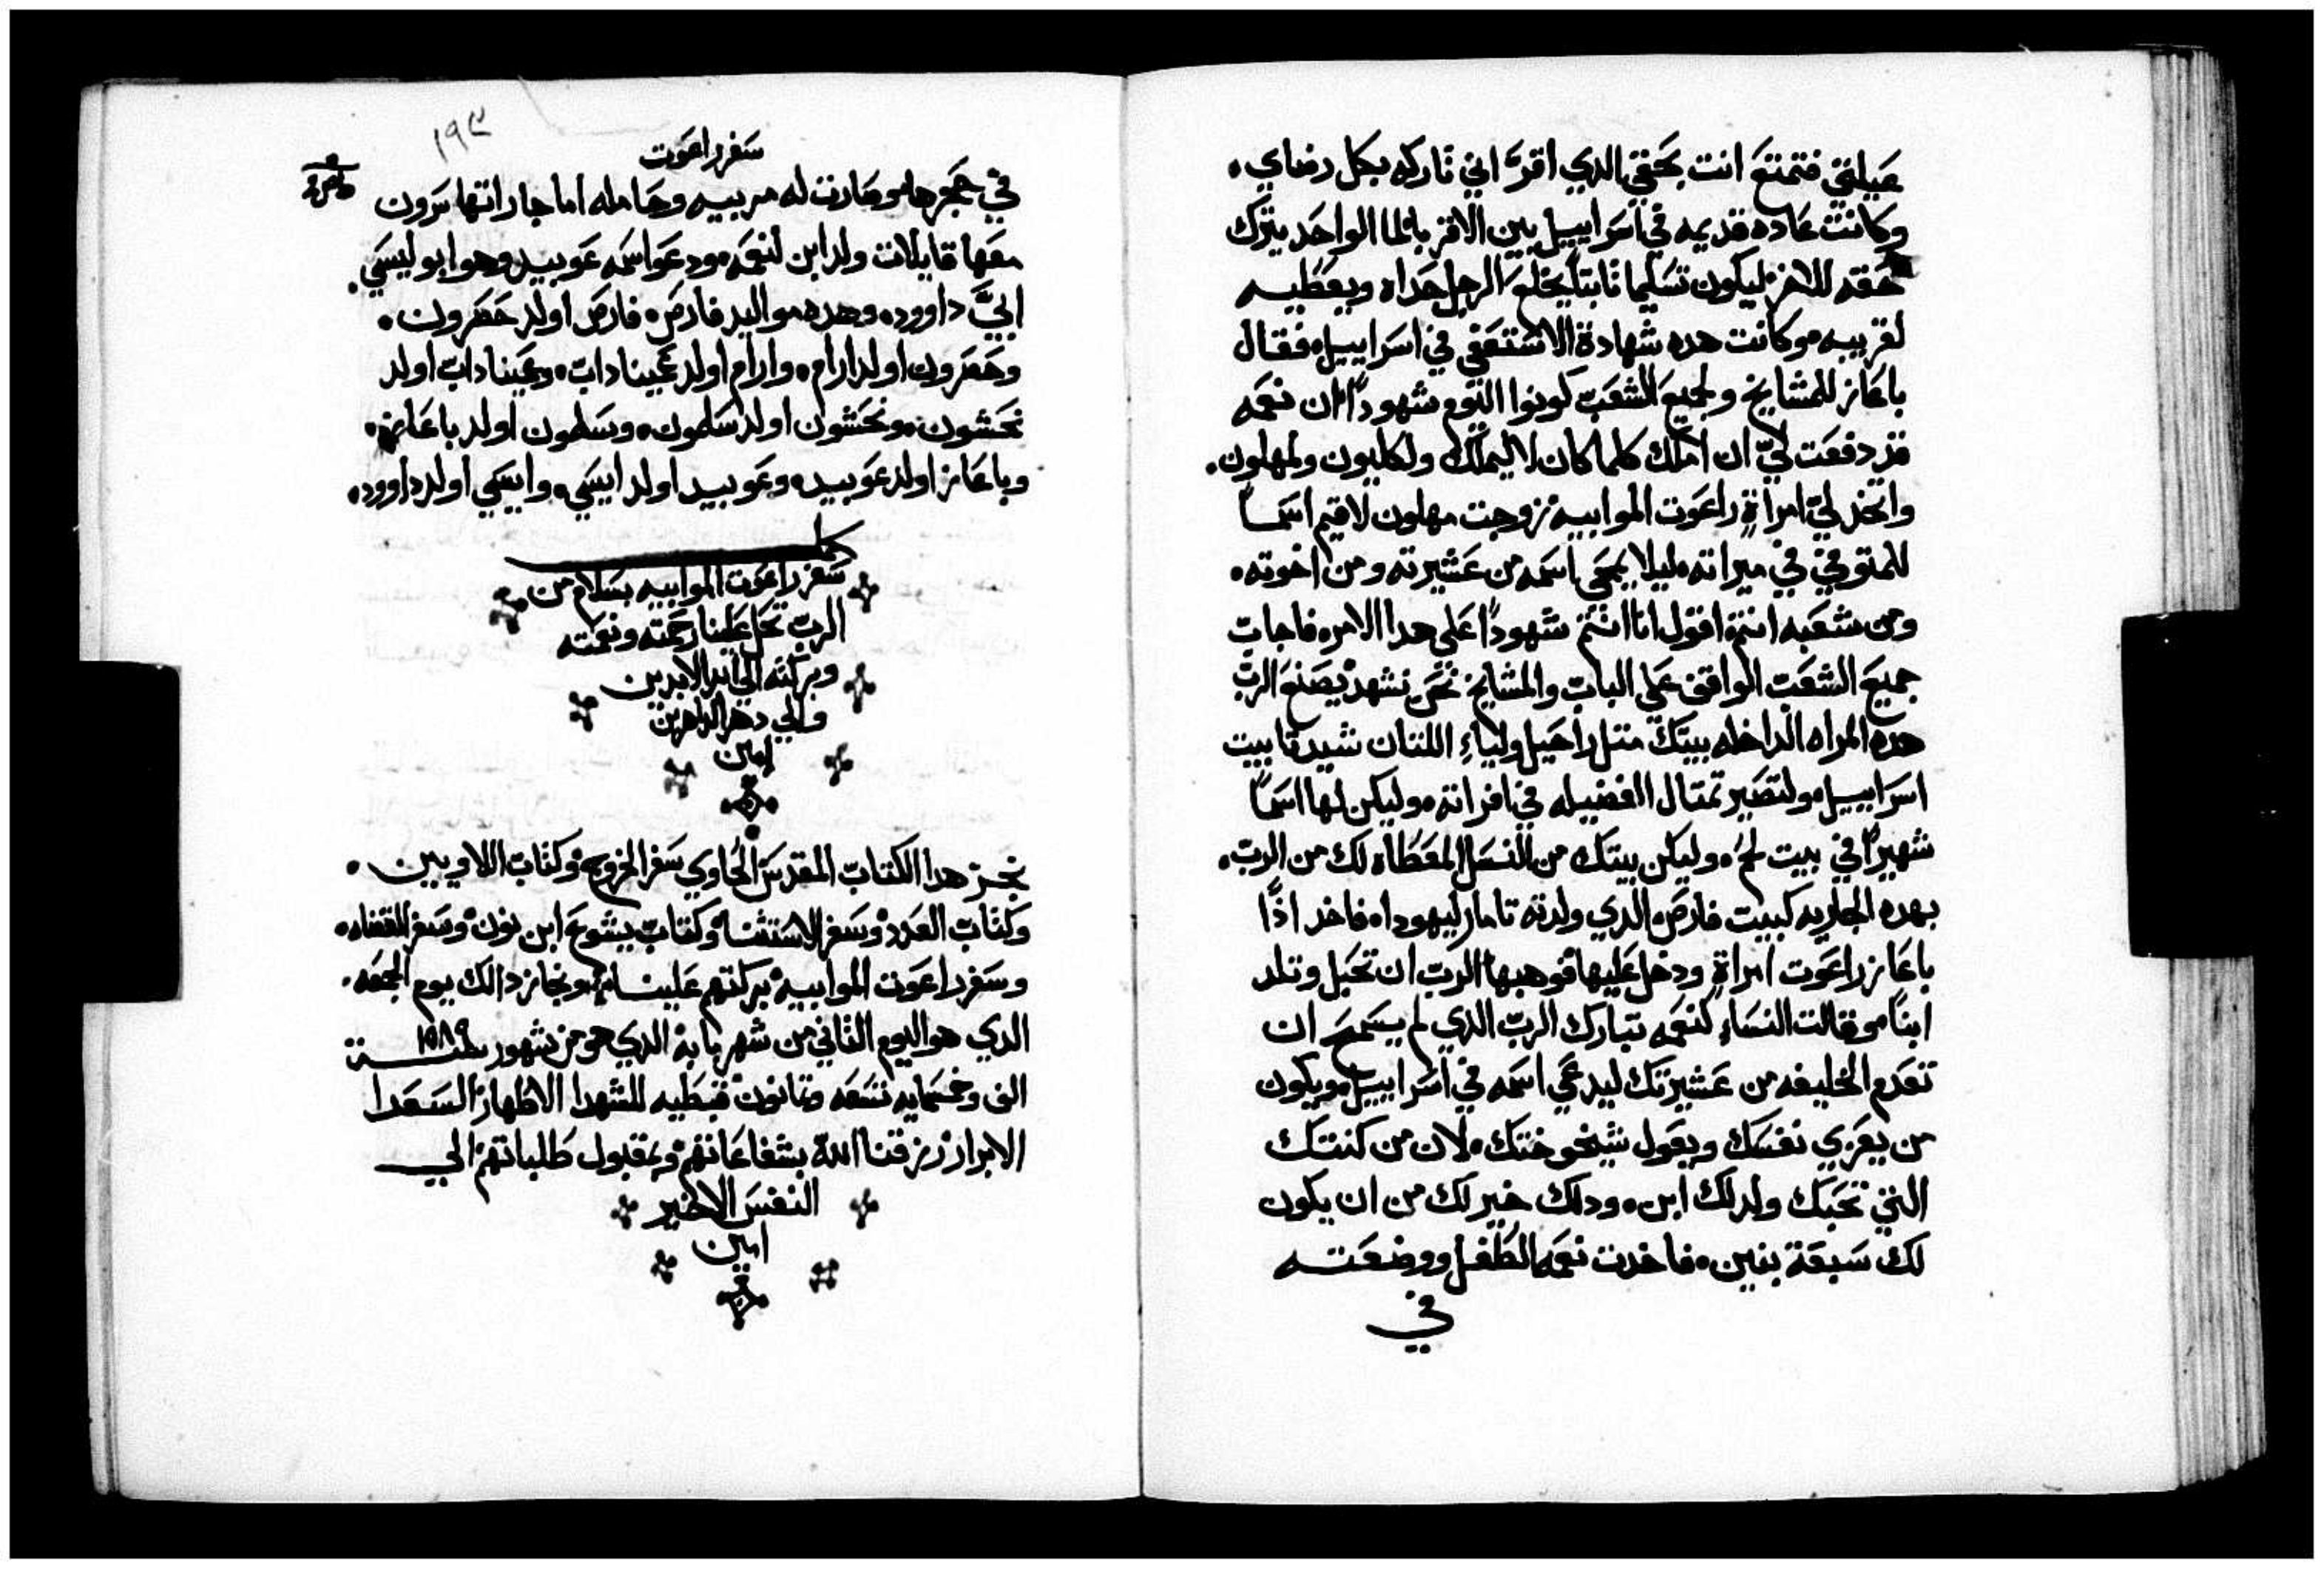 عيلتي فتمتع انت بحقي الدي اقرَّ اني تاركه بكل رضاي.
وكانت عاده قديمه في اسراييل بين الاقربا لما الواحد يترك
حقه للاخر ليكون تسليما ثابتاً يخلع الرجل حداه ويعطيه
لقريبه وكانت هده شهادة الاستعفي في اسراييل فقال
باعاز للمشايخ ولجميع الشعب كونوا اليوم شهوداً ان نعمه
قد دفعت ليّ ان املك كلما كان لاليملك ولكليون ولمهلون.
واتخد ليّ امراةٍ راعوت الموابيه زوجت مهلون لاقيم اسماً
للمتوفي في ميراته ليلا يمحي اسمه من عشيرته ومن اخوته.
ومن شعبه انتم اقول انا انتم شهوداً علي هدا الامر فاجاب
جميع الشعب الواقف علي الباب والمشايخ نحن نشهد يصنع الرب
هده المراه الداخله بيتك متل راحيل ولياءِ اللتان شيدتا بيت
اسراييل ولتصير تمتال الفضيله في افراته وليكن لها اسماً
شهيراً في بيت لحم وليكن بيتك من النسل المعطاه لك من الرب.
بهده الجاريه كبيت فارص الدي ولدته تامار ليهودا فاخد اذًا
باعاز راعوت امراةٍ ودخل عليها فوهبها الرب ان تحبل وتلد
ابناً وقالت النساءِ لنعمه تبارك الرب الدي لم يسمح ان
تعدم الخليفه من عشيرتك ليدعي اسمه في اسراييل ويكون
من يعزي نفسك ويعول شيخوختك لان من كنتك
التي تحبك ولد لك ابن. ودلك خير لك من ان يكون
لك سبعة بنين. فاخدت نعمه الطفل ووضعته
في
سفر راعوت
١٩٤
في حجرها وصارت له مربيه وحامله اما جاراتها سرون
معها قايلات ولد ابن لنعمه ودعوا اسمه عوبيد وهو ابو ليسي.
ابيّ داوود. وهده مواليد فارص. فارص اولد حصرون.
وحصرون اولد ارام. وارام اولد عميناداب. وعميناداب اولد
نحشون. ونحشون اولد سلمون. وسلمون اولد باعاز.
وباعاز اولد عوبيد. وعوبيد اولد ايسي. وايسي اولد داوود.
كمل
سفر راعوت الموابيه بسلام من
الرب تحل علينا رحمته ونعمته
وبركته الي ابد الابدين
والي دهر الداهرين
امين
نجز هدا الكتاب المقدس الحاوي سفر الخروج وكتاب اللاويين.
وكتاب العدد وسفر الاستثنا وكتاب يشوع ابن نون وسفر القضاه.
وسفر راعوت الموابيه بركتهم علينا ونجاز دالك يوم الجمعه.
الدي هو اليوم الثاني من شهر بابه الدي هو من شهور سنة ١٥٨٩
الف وخسمايه تسعه وتمانون قبطيه للشهدا الاطهار السعدا
الابرار رزقنا الله بشفاعاتهم وبمقبول طلباتهم الي
النفس الاخير
امين